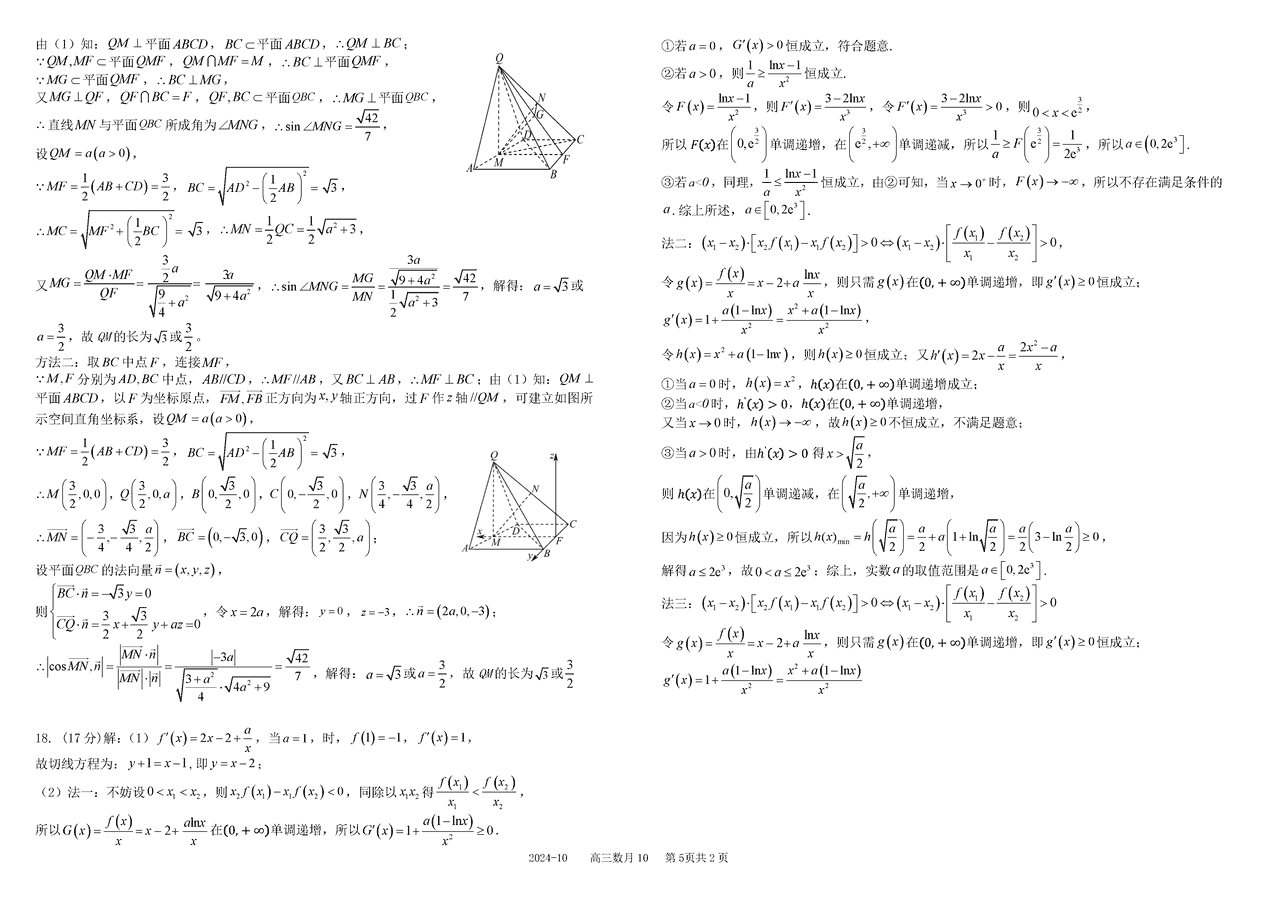 由（1）知：QM⊥平面ABCD，BC⊂平面ABCD，∴QM⊥BC；
∵QM,MF⊂平面QMF，QM⋂MF=M，∴BC⊥平面QMF，
∵MG⊂平面QMF，∴BC⊥MG，
又MG⊥QF，QF⋂BC=F，QF,BC⊂平面QBC，∴MG⊥平面QBC，
∴直线MN与平面QBC所成角为∠MNG，∴sin∠MNG=√42/7，
设QM=a(a>0)，
∵MF=1/2(AB+CD)=3/2，BC=√(AD²-(1/2 AB)²)=√3，
∴MC=√(MF²+(1/2 BC)²)=√3，∴MN=1/2 QC=1/2 √(a²+3)，
又MG=QM·MF/QF=(3/2 a)/√(9/4+a²)=3a/√(9+4a²)，∴sin∠MNG=MG/MN=(3a/√(9+4a²))/(1/2 √(a²+3))=√42/7，解得：a=√3或
a=3/2，故QM的长为√3或3/2。
方法二：取BC中点F，连接MF，
∵M,F分别为AD,BC中点，AB//CD，∴MF//AB，又BC⊥AB，∴MF⊥BC；由（1）知：QM⊥
平面ABCD，以F为坐标原点，FM,FB正方向为x,y轴正方向，过F作z轴//QM，可建立如图所
示空间直角坐标系，设QM=a(a>0)，
∵MF=1/2(AB+CD)=3/2，BC=√(AD²-(1/2 AB)²)=√3，
∴M(3/2,0,0)，Q(3/2,0,a)，B(0,√3/2,0)，C(0,-√3/2,0)，N(3/4,-√3/4,a/2)，
∴MN=(-3/4,-√3/4,a/2)，BC=(0,-√3,0)，CQ=(3/2,√3/2,a)；
设平面QBC的法向量n=(x,y,z)，
则{BC·n=-√3y=0
CQ·n=3/2 x+√3/2 y+az=0，令x=2a，解得：y=0，z=-3，∴n=(2a,0,-3)；
∴|cosMN,n|=|MN·n|/|MN|·|n|=|-3a|/(√((3+a²)/4)·√(4a²+9))=√42/7，解得：a=√3或a=3/2，故QM的长为√3或3/2
Q
N
G
D
C
M
F
A
B
Q
z
N
C
x
D
A
M
F
y
B
18. (17分)解：（1）f′(x)=2x-2+a/x，当a=1，时，f(1)=-1，f′(x)=1，
故切线方程为：y+1=x-1, 即y=x-2；
（2）法一：不妨设0<x₁<x₂，则x₂f(x₁)-x₁f(x₂)<0，同除以x₁x₂得f(x₁)/x₁<f(x₂)/x₂，
所以G(x)=f(x)/x=x-2+alnx/x在(0,+∞)单调递增，所以G′(x)=1+a(1-lnx)/x²≥0.
①若a=0，G′(x)>0恒成立，符合题意.
②若a>0，则1/a≥(lnx-1)/x²恒成立.
令F(x)=(lnx-1)/x²，则F′(x)=(3-2lnx)/x³，令F′(x)=(3-2lnx)/x³>0，则0<x<e^(3/2)，
所以F(x)在(0,e^(3/2))单调递增，在(e^(3/2),+∞)单调递减，所以1/a≥F(e^(3/2))=1/2e³，所以a∈(0,2e³].
③若a<0，同理，1/a≤(lnx-1)/x²恒成立，由②可知，当x→0⁺时，F(x)→-∞，所以不存在满足条件的
a.综上所述，a∈[0,2e³].
法二：(x₁-x₂)·[x₂f(x₁)-x₁f(x₂)]>0⇔(x₁-x₂)·[f(x₁)/x₁-f(x₂)/x₂]>0，
令g(x)=f(x)/x=x-2+a lnx/x，则只需g(x)在(0,+∞)单调递增，即g′(x)≥0恒成立；
g′(x)=1+a(1-lnx)/x²=(x²+a(1-lnx))/x²，
令h(x)=x²+a(1-lnx)，则h(x)≥0恒成立；又h′(x)=2x-a/x=(2x²-a)/x，
①当a=0时，h(x)=x²，h(x)在(0,+∞)单调递增成立；
②当a<0时，h′(x)>0，h(x)在(0,+∞)单调递增，
又当x→0时，h(x)→-∞，故h(x)≥0不恒成立，不满足题意；
③当a>0时，由h′(x)>0得x>√(a/2)，
则h(x)在(0,√(a/2))单调递减，在(√(a/2),+∞)单调递增，
因为h(x)≥0恒成立，所以h(x)min=h(√(a/2))=a/2+a(1+ln√(a/2))=a/2(3-ln a/2)≥0，
解得a≤2e³，故0<a≤2e³；综上，实数a的取值范围是a∈[0,2e³].
法三：(x₁-x₂)·[x₂f(x₁)-x₁f(x₂)]>0⇔(x₁-x₂)·[f(x₁)/x₁-f(x₂)/x₂]>0
令g(x)=f(x)/x=x-2+a lnx/x，则只需g(x)在(0,+∞)单调递增，即g′(x)≥0恒成立；
g′(x)=1+a(1-lnx)/x²=(x²+a(1-lnx))/x²
2024-10 高三数月10 第5页共2页